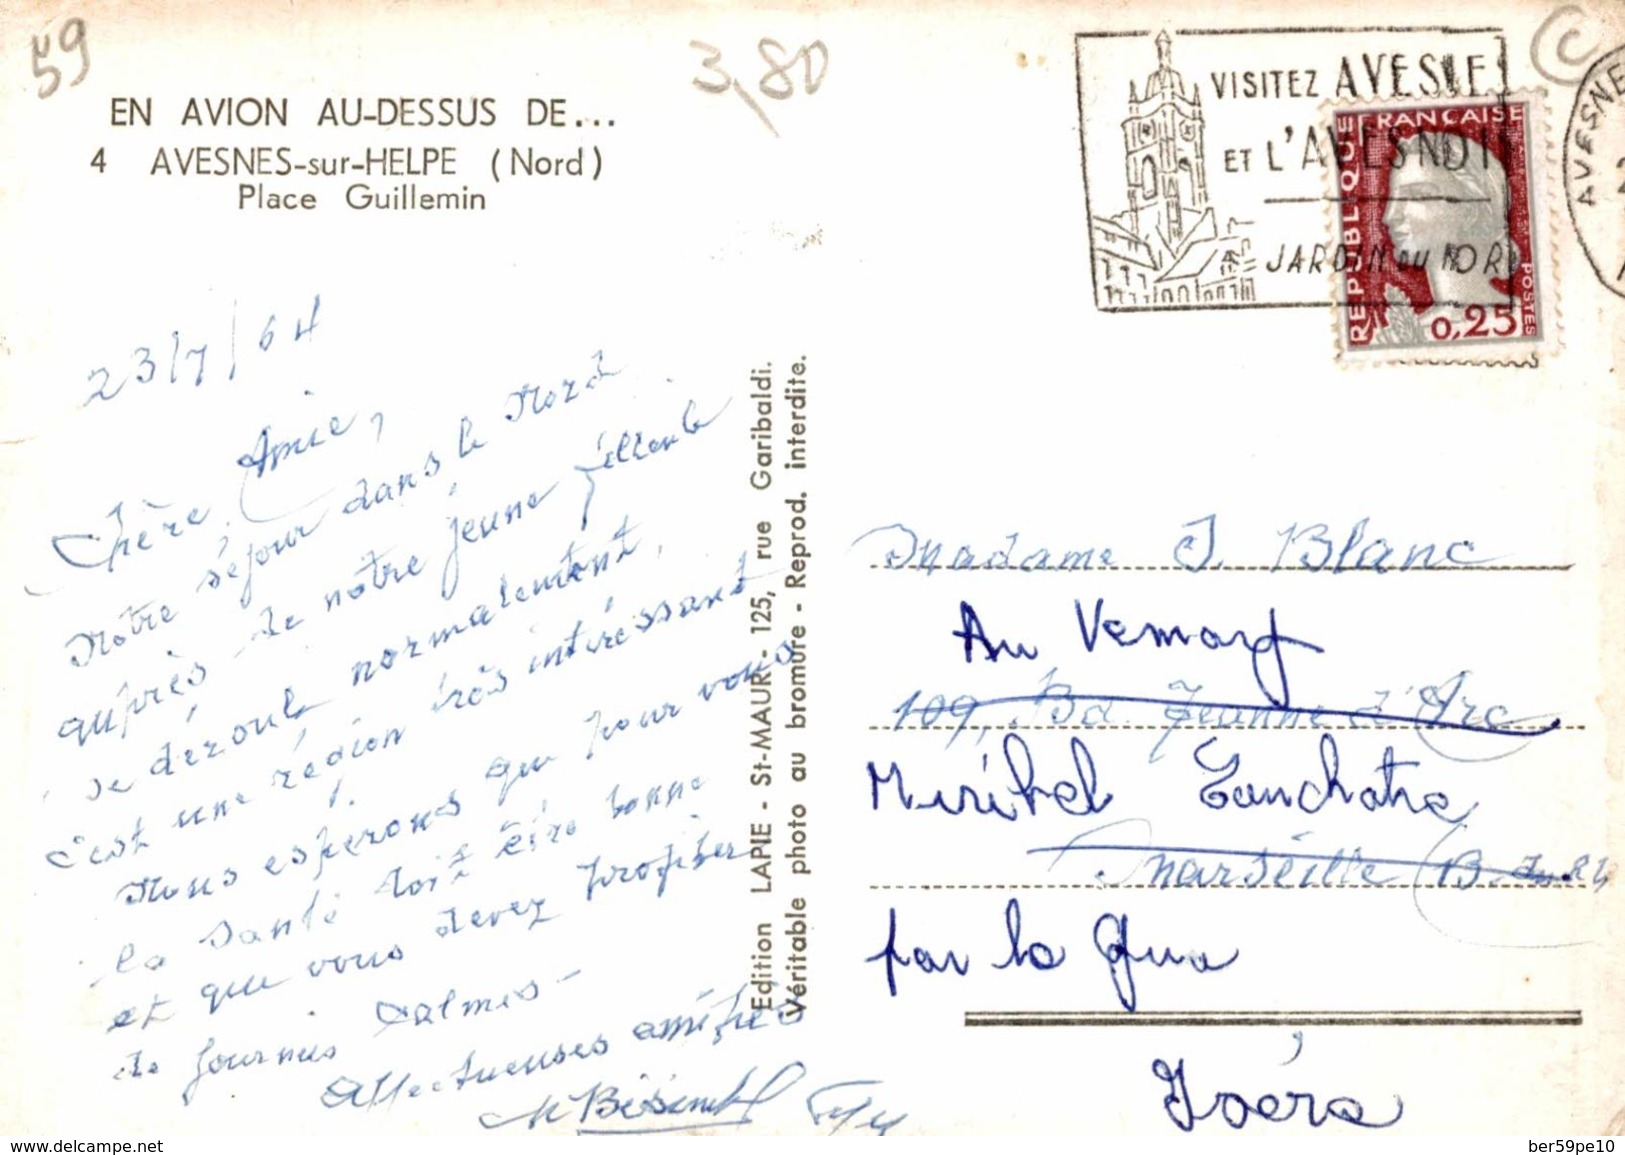 59
3,80
C
EN AVION AU-DESSUS DE...
4 AVESNES-sur-HELPE (Nord)
Place Guillemin
VISITEZ AVESNES
ET L'AVESNOIS
JARDIN DU NORD
REPUBLIQUE FRANÇAISE
POSTES
0,25
AVESNE
23/7/64
Chère Amie,
Notre séjour dans le Nord
auprès de notre jeune filleule
se déroule normalement,
c'est une région très intéressante
Nous espérons que pour vous
la santé doit être bonne
et que vous devez profiter
de journées calmes -
Affectueuses amitiés
Edition LAPIE - St-MAUR - 125, rue Garibaldi.
Véritable photo au bromure - Reprod. interdite.
Madame J. Blanc
Au
109, Bd Jeanne d'Arc
Miribel Lanchatre
Marseille
par le Gua
Isère
delcampe.net
ber59pe10